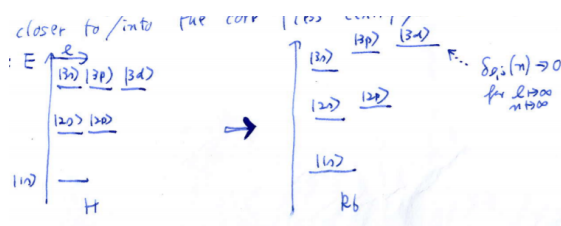 closer to / into the core (less
E l
|3s> |3p> |3d>
|2s> |2p>
|1s>
H
|3s> |3p> |3d>
|2s> |2p>
|1s>
Rb
δl,j(n) → 0
for l → ∞
n → ∞